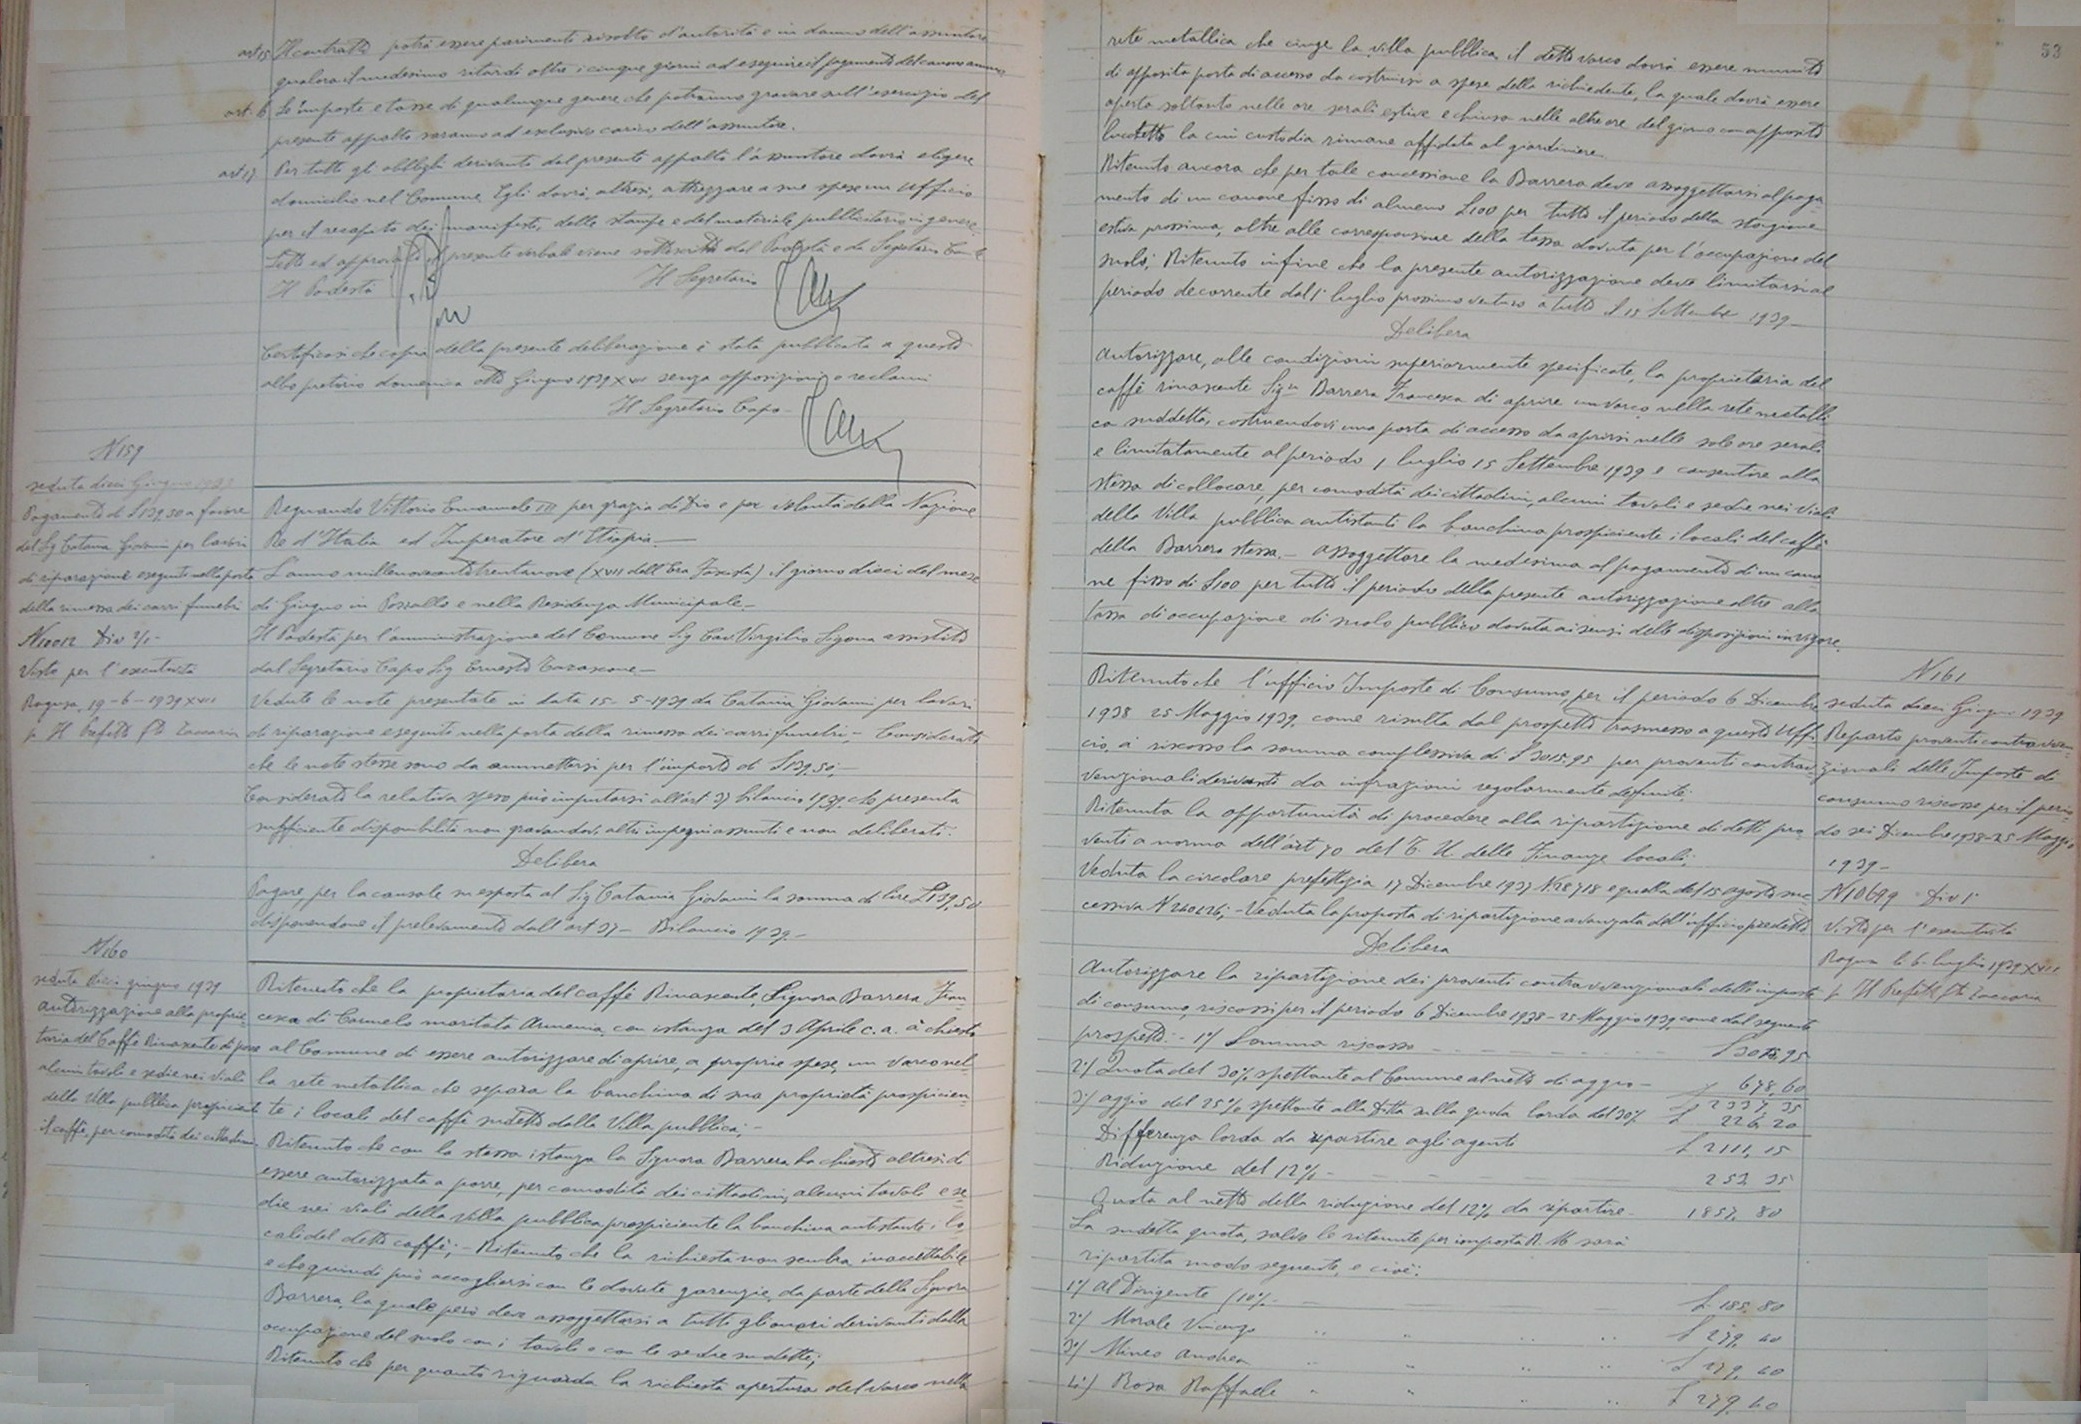 art 15 Il contratto potrà essere parimenti risolto d'autorità e in danno dell'assuntore
qualora il medesimo ritardi oltre i cinque giorni ad eseguire il pagamento del canone annuo
art. 6 Le imposte e tasse di qualunque genere che potranno gravare sull'esercizio del
presente appalto saranno ad esclusivo carico dell'assuntore.
art 17 Per tutti gli obblighi derivanti dal presente appalto l'assuntore dovrà eligere
domicilio nel Comune. Egli dovrà, altresì, attrezzare a sue spese un ufficio
per il recapito dei manifesti, delle stampe e del materiale pubblicitario in genere.
Letto ed approvato il presente verbale viene sottoscritto dal Podestà e da Segretario
Il Podestà
Il Segretario
Certificasi che copia della presente deliberazione è stata pubblicata a questo
albo pretorio domenica Giugno 1939 XVII senza opposizioni o reclami
Il Segretario Capo
N 159
seduta dieci Giugno 1939
Pagamento di L 139,50 a favore
del Sg Catania Giovanni per lavori
di riparazione eseguiti nella porta
della rimessa dei carri funebri
N 10012 Div 2/1-
Visto per l'esecutività
Ragusa, 19-6-1939 XVII
p. Il Prefetto fto Zaccaria
Regnando Vittorio Emanuele III per grazia di Dio e per volontà della Nazione
Re d'Italia ed Imperatore d'Etiopia.
L'anno millenovecentotrentanove (XVII dell'Era Fascista) il giorno dieci del mese
di Giugno in Pozzallo e nella Residenza Municipale
Il Podestà per l'amministrazione del Comune Sig Cav. Virgilio Sigona assistito
dal Segretario Capo Sg Ernesto Tarascone
Vedute le note presentate in data 15-5-1939 da Catania Giovanni per lavori
di riparazione eseguiti nella porta della rimessa dei carri funebri; - Considerato
che le note stesse sono da ammettersi per l'importo di L 139,50;
Considerato la relativa spesa può imputarsi all'art 37 bilancio 1939 che presenta
sufficiente disponibilità non gravandovi altri impegni assunti e non deliberati:
Delibera
Pagare, per la causale su esposta al Sig Catania Giovanni la somma di lire L 139,50
disponendone il prelevamento dall'art 37 - Bilancio 1939.-
N 160
seduta dieci giugno 1939
Autorizzazione alla proprie-
taria del Caffè Rinascente di porre
alcuni tavoli e sedie nei viali
della Villa pubblica prospiciente
il caffè, per comodità dei cittadini.
Ritenuto che la proprietaria del caffè Rinascente Signora Barrera Fran-
cesca di Carmelo maritata Armenia, con istanza del 3 Aprile c. a. à chiesto
al Comune di essere autorizzare di aprire, a proprie spese, un varco nel
la rete metallica che separa la banchina di sua proprietà prospicien-
te i locali del caffè sudetto dalla Villa pubblica; -
Ritenuto che con la stessa istanza la Signora Barrera ha chiesto altresì di
essere autorizzata a porre, per comodità dei cittadini, alcuni tavoli e se-
die nei viali della villa pubblica prospiciente la banchina antistante i lo
cali del detto caffè; - Ritenuto che la richiesta non sembra inaccettabile
e che quindi può accogliersi con le dovute garenzie da parte della Signora
Barrera, la quale però deve assoggettarsi a tutti gli oneri derivanti dalla
occupazione del suolo con i tavoli e con le sedie sudette;
Ritenuto che per quanto riguarda la richiesta apertura del varco nella
53
rete metallica che cinge la villa pubblica, il detto varco dovrà essere munito
di apposita porta di accesso da costruirsi a spese della richiedente, la quale dovrà essere
aperta soltanto nelle ore serali estive e chiusa nelle altre ore del giorno con apposito
lucchetto la cui custodia rimane affidata al giardiniere.
Ritenuto ancora che per tale concessione la Barrera deve assoggettarsi al paga-
mento di un canone fisso di almeno L 100 per tutto il periodo della stagione
estiva prossima, oltre alle corresponsione della tassa dovuta per l'occupazione del
suolo; Ritenuto infine che la presente autorizzazione deve limitarsi al
periodo decorrente dal 1° luglio prossimo venturo a tutto il 15 Settembre 1939-
Delibera
Autorizzare, alle condizioni superiormente specificate, la proprietaria del
caffè rinascente Sigra Barrera Francesca di aprire un varco nella rete metalli
ca suddetta, costruendovi una porta di accesso da aprirsi nelle sole ore serali
e limitatamente al periodo 1 luglio 15 Settembre 1939 e consentire alla
stessa di collocare, per comodità dei cittadini, alcuni tavoli e sedie nei viali
della Villa pubblica antistanti la banchina prospiciente i locali del caffè
della Barrera stessa. - assoggettare la medesima al pagamento di un cano
ne fisso di L 100 per tutto il periodo della presente autorizzazione oltre alla
tassa di occupazione di suolo pubblico dovuta ai sensi delle disposizioni in vigore.
Ritenuto che l'ufficio Imposte di Consumo, per il periodo 6 Dicembre
1938 25 Maggio 1939, come risulta dal prospetto trasmesso a questo Uffi
cio, à riscosso la somma complessiva di L 3015.95 per proventi contrav-
venzionali derivanti da infrazioni regolarmente definite;
Ritenuta la opportunità di procedere alla ripartizione di detti pro
venti a norma dell'art 70 del T. U. delle Finanze locali;
Veduta la circolare prefettizia 17 Dicembre 1937 N 28718 e quella del 15 agosto suc
cessiva N 240226; - Veduta la proposta di ripartizione avanzata dall'ufficio predetto
Delibera
Autorizzare la ripartizione dei proventi contravvenzionali delle imposte
di consumo, riscossi per il periodo 6 Dicembre 1938-25 Maggio 1939, come dal seguente
prospetto: - 1°/ Somma riscossa L 3015,95
2°/ Quota del 30% spettante al Comune al netto di aggio - 678,60
L 2337,35
3°/ aggio del 25% spettante alla Ditta sulla quota lorda del 30% L 226,20
Differenza lorda da ripartire agli agenti L 2111,15
Riduzione del 12% - 253 35
Quota al netto della riduzione del 12% da ripartire - 1857, 80
La sudetta quota, salvo le ritenute per imposta R. M sarà
ripartita modo seguente, e cioè:
1°/ Al Dirigente (10% L 185,80
2°/ Morale Vincenzo L 279,60
3°/ Mineo Andrea L 279,60
4°/ Rosa Raffaele L 279,60
N 161
seduta dieci Giugno 1939
Reparto proventi contravven-
zionali delle Imposte di
consumo riscosse per il perio
do sei Dicembre 1938-25 Maggio
1939-
N 10699 Div 1°
Visto per l'esecutività
Ragusa li 6 luglio 1939 XVII
p. Il Prefetto fto Zaccaria